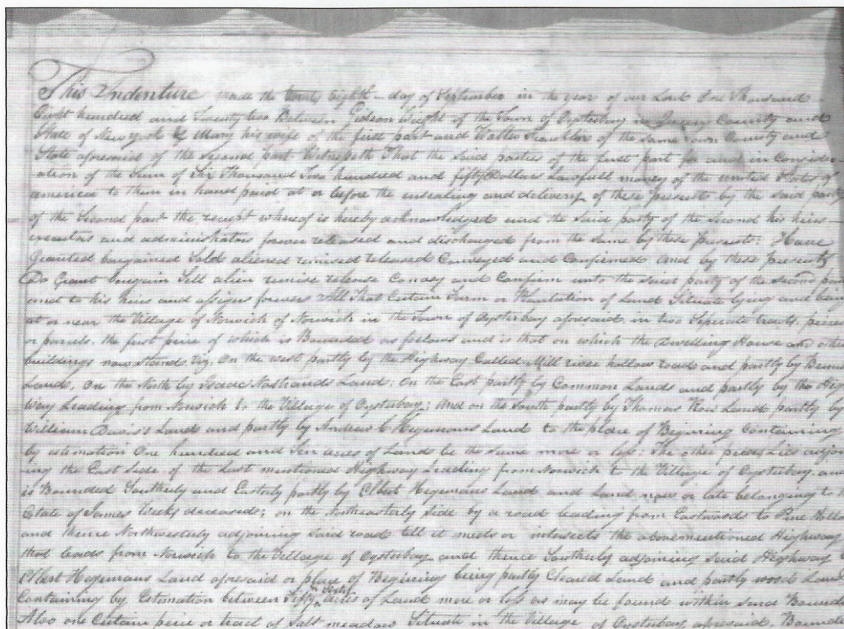 This Indenture made the twenty eighth day of September in the year of our Lord One Thousand
Eight hundred and Twenty two Between Gideon Wright of the Town of Oysterbay in Queens County and
State of New york & Mary his wife of the first part and Walter Franklin of the same Town County and
State aforesaid of the Second part Witnesseth That the said parties of the first part for and in Consider-
ation of the Sum of Six Thousand Two hundred and fifty Dollars Lawfull money of the united States of
america to them in hand paid at or before the ensealing and delivery of these presents by the said party
of the Second part the receipt whereof is hereby acknowledged and the Said party of the Second his heirs
executors and administrators forever released and discharged from the Same by these presents: Have
Granted bargained Sold aliened remised released Conveyed and Confirmed and by these presents
Do Grant bargain Sell alien remise release Convey and Confirm unto the said party of the Second part
and to his heirs and assigns forever All That Certain Farm or Plantation of Land Situate lying and being
at or near the Village of Norwich of Norwich in the Town of Oysterbay aforesaid in two Seperate tracts, pieces
or parcels. the first piece of which is Bounded as follows and is that on which the dwelling House and other
buildings now stand Viz. On the west partly by the Highway Called Mill river hollow road and partly by
Land, On the North by Isaac Nostrands Land. On the East partly by Common Lands and partly by the High
Way Leading from Norwich to the Village of Oysterbay: And on the South partly by Thomas Land partly by
William Land and partly by Andrew C Hegemans Land to the place of Begining Containing
by estimation One hundred and Ten acres of Land be the Same more or less: The other piece Lies adjoin
ing the East Side of the Last mentioned Highway Leading from Norwich to the Village of Oysterbay and
is Bounded Southerly and Easterly partly by Elbert Hegemans Land and Land now or late belonging to the
Estate of James Weeks deceased; on the Northeasterly Side by a road leading from Eastwoods to Pine Hollow
and thence Northwesterly adjoining Said road till it meets or intersects the abovementioned Highway
that leads from Norwich to the Village of Oysterbay and thence Southerly adjoining Said Highway to
Elbert Hegemans Land aforesaid or place of Begining being partly Cleared Land and partly wood Land
Containing by Estimation between Fifty acres of Land more or less as may be found within Said Bounds
Also one Certain piece or tract of Salt meadow Situate in the Village of Oysterbay aforesaid, Bounded